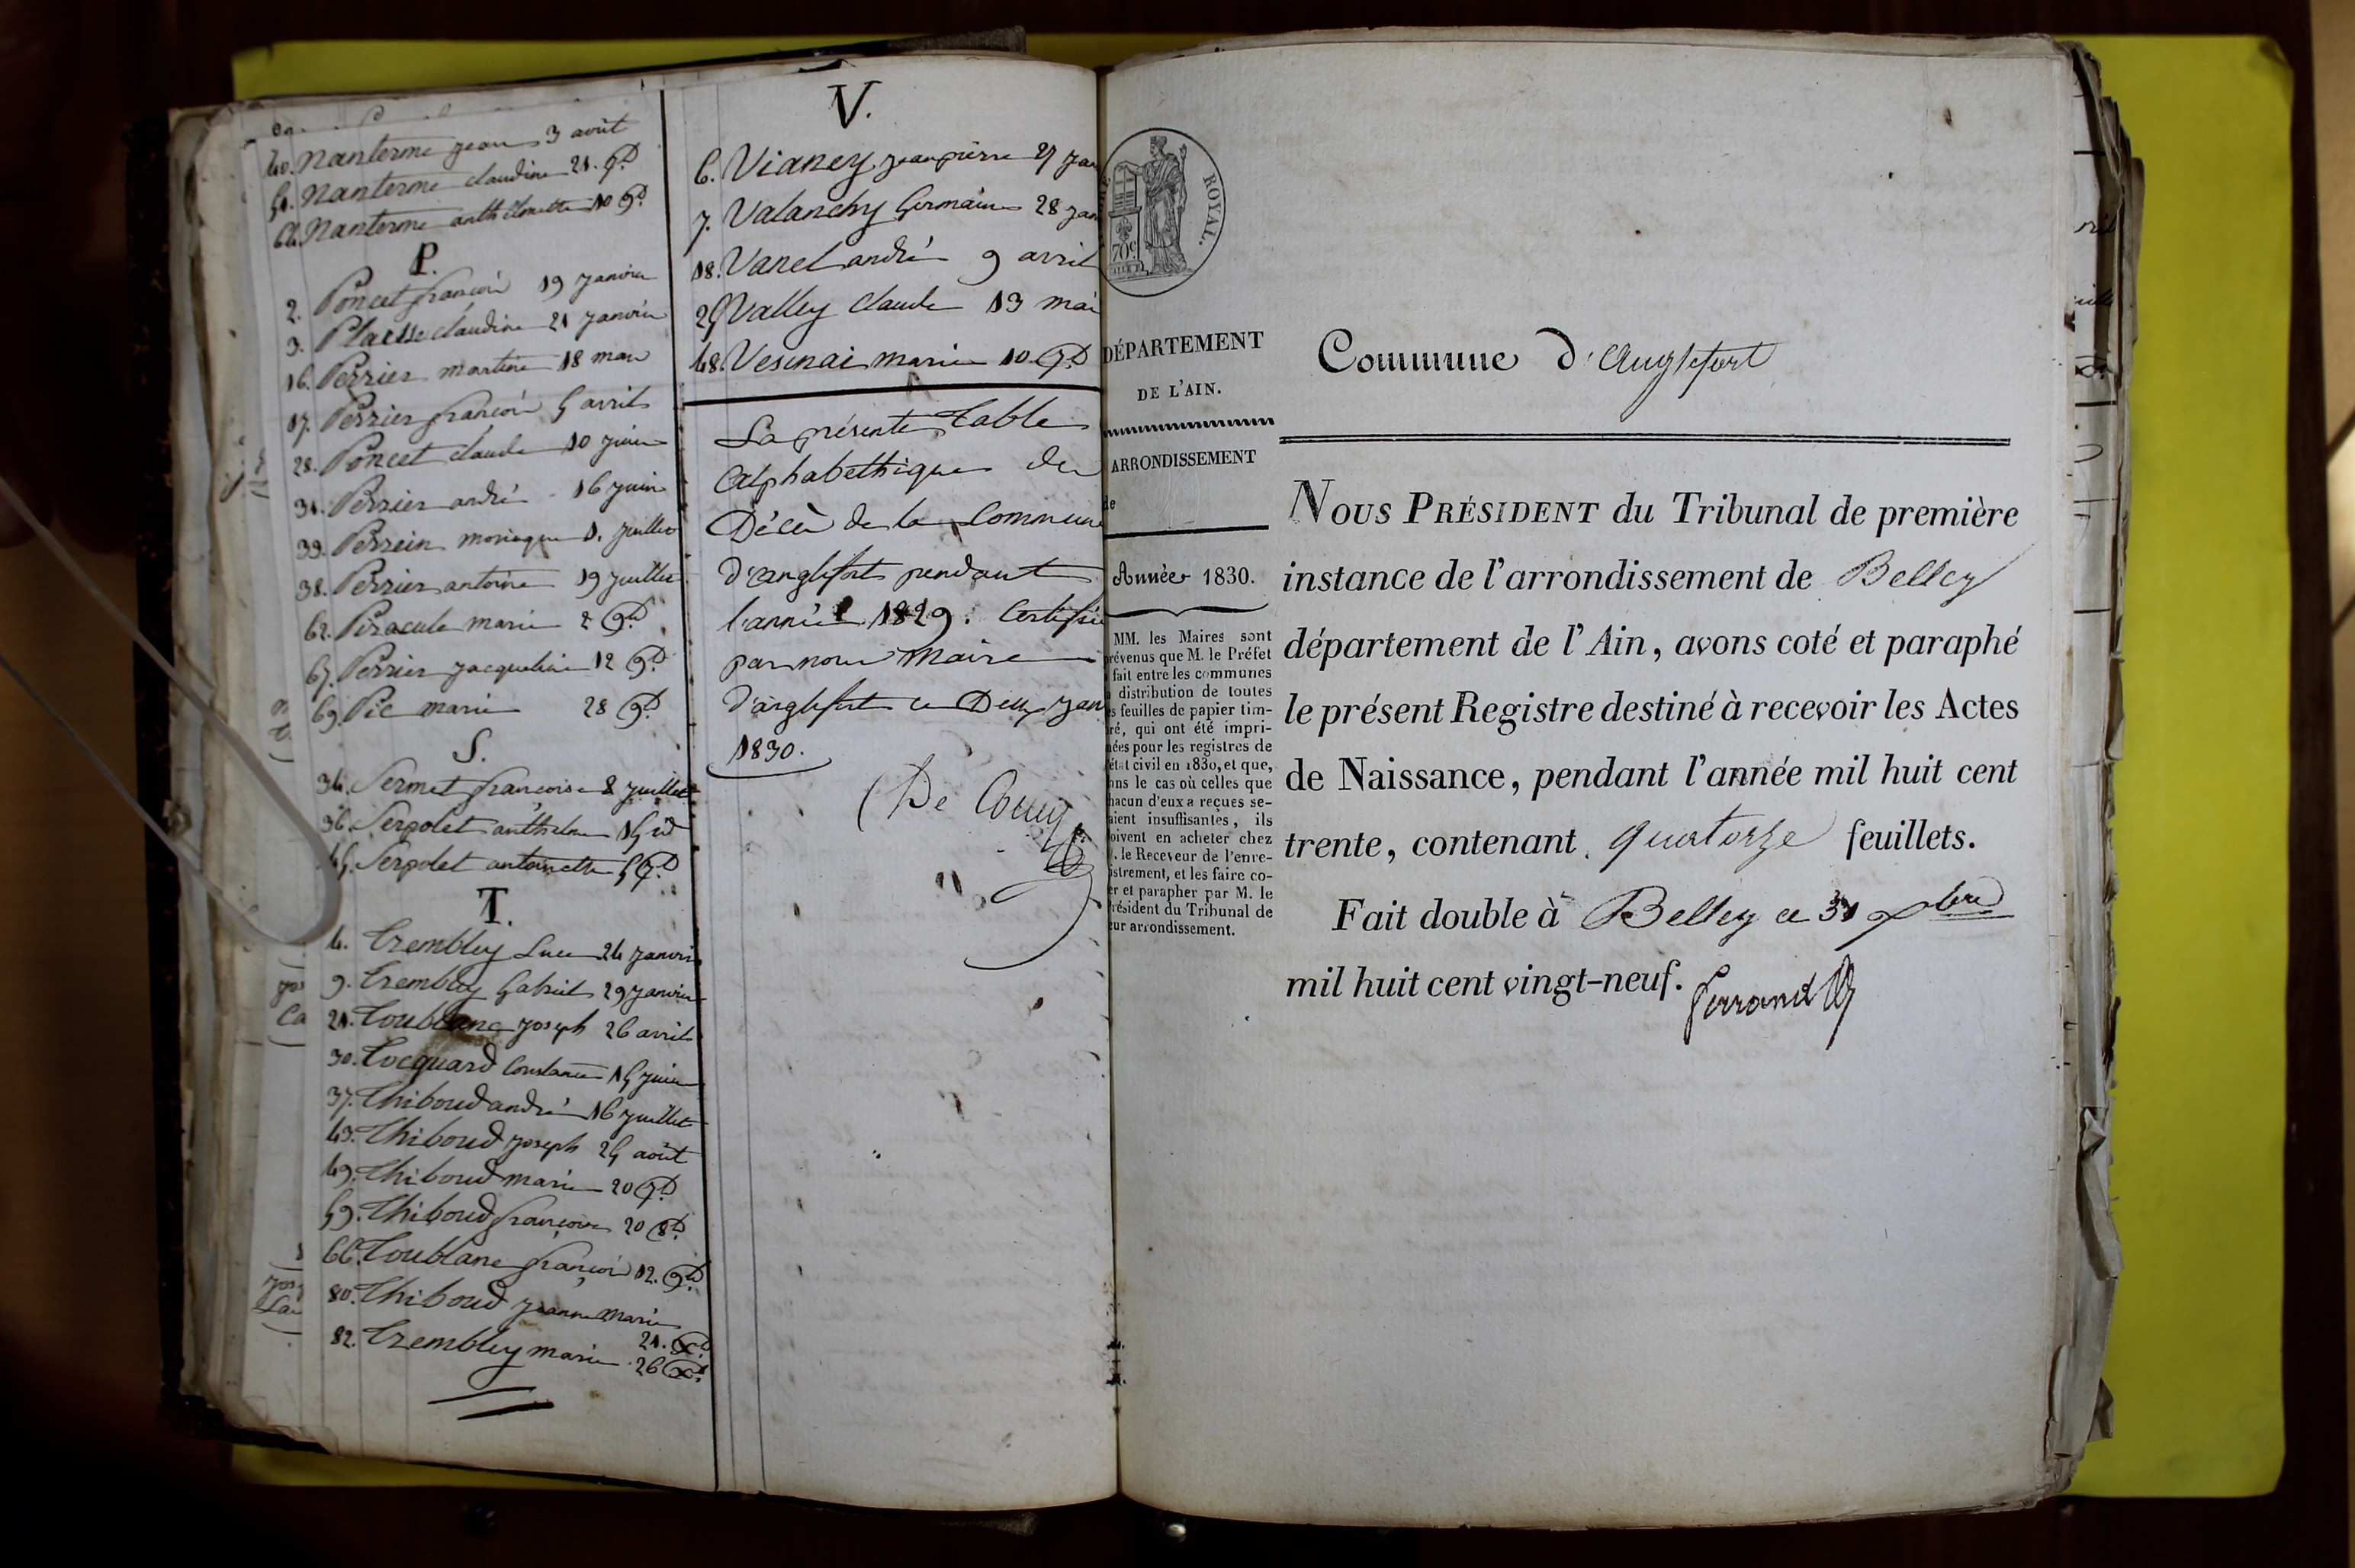 40. Nanterme jean 3 août
51. Nanterme claudine 21. 9.d
66. Nanterme anthelmette 10 9.d
P.
2. Poncet françois 19 janvier
3. Plaisse claudine 21 janvier
16. Perrier martine 18 mars
17. Perrier françois 5 avril
28. Poncet claude 10 juin
31. Perrier andré 16 juin
33. Perrein monique 1. juillet
38. Perrier antoine 19 juillet
62. Piracule marie 2 9.d
67. Perrier jacqueline 12 9.d
69. Pic marie 28 9.d
S.
34. Sermet françoise 8 juillet
36. Serpolet anthelme 15 id
45. Serpolet antoinette 5 7.d
T.
4. Trembley Luce 24 janvier
9. Trembley Gabriel 29 janvier
21. Toublanc joseph 26 avril
30. Tocquard Constance 15 juin
37. Thiboud andré 16 juillet
43. Thiboud joseph 25 août
49. Thiboud marie 20 7.d
59. Thiboud françoise 20 8.d
66. Toublanc françois 12. 9.d
80. Thiboud jeanne marie
21. X.d
82. Trembley marie 26 X.d
V.
6. Vianey jean pierre 27 jan
7. Valanchy Germain 28 jan
18. Vanel andré 9 avril
25 Valley Claude 13 mai
48. Vesinai marie 10. 7.d
La présente Table
Alphabéthique des
Décès de la Commune
d'anglefort pendant
l'année 1829. Certifié
par nous Maire
d'anglefort ce Deux jan
1830.
De Coucy
ROYAL.
70c.
DÉPARTEMENT
DE L'AIN.
ARRONDISSEMENT
de
Année 1830.
MM. les Maires sont
prévenus que M. le Préfet
fait entre les communes
distribution de toutes
feuilles de papier tim-
ré, qui ont été impri-
ées pour les registres de
état civil en 1830, et que,
ans le cas où celles que
hacun d'eux a reçues se-
aient insuffisantes, ils
oivent en acheter chez
. le Receveur de l'enre-
istrement, et les faire co-
er et parapher par M. le
résident du Tribunal de
eur arrondissement.
Commune d'Anglefort
NOUS PRÉSIDENT du Tribunal de première
instance de l'arrondissement de Belley
département de l'Ain, avons coté et paraphé
le présent Registre destiné à recevoir les Actes
de Naissance, pendant l'année mil huit cent
trente, contenant quatorze feuillets.
Fait double à Belley ce 31 xbre
mil huit cent vingt-neuf.
Ferrand